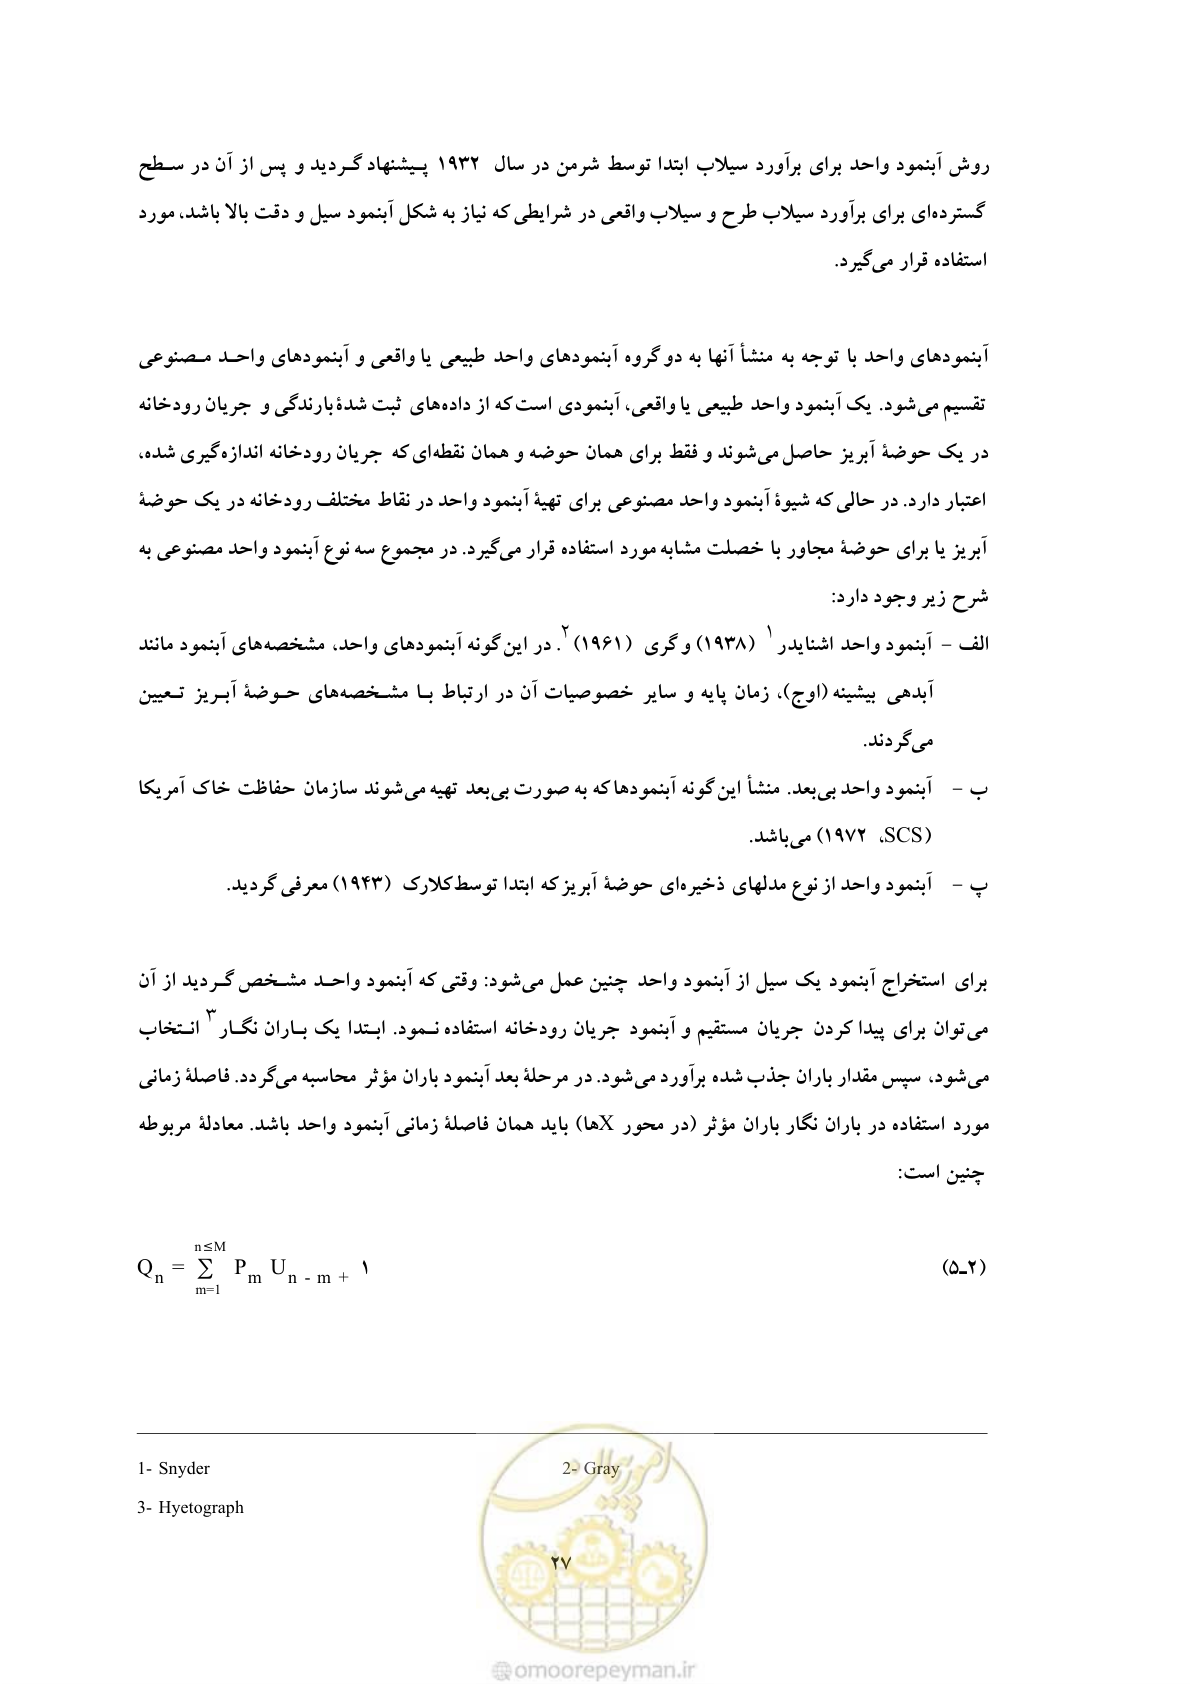 روش آبنمود واحد برای برآورد سیلاب ابتدا توسط شرمن در سال ۱۹۳۲ پیشنهاد گردید و پس از آن در سطح
گسترده‌ای برای برآورد سیلاب طرح و سیلاب واقعی در شرایطی که نیاز به شکل آبنمود سیل و دقت بالا باشد، مورد
استفاده قرار می‌گیرد.
آبنمودهای واحد با توجه به منشأ آنها به دو گروه آبنمودهای واحد طبیعی یا واقعی و آبنمودهای واحد مصنوعی
تقسیم می‌شود. یک آبنمود واحد طبیعی یا واقعی، آبنمودی است که از داده‌های ثبت شدهٔ بارندگی و جریان رودخانه
در یک حوضهٔ آبریز حاصل می‌شوند و فقط برای همان حوضه و همان نقطه‌ای که جریان رودخانه اندازه‌گیری شده،
اعتبار دارد. در حالی که شیوهٔ آبنمود واحد مصنوعی برای تهیهٔ آبنمود واحد در نقاط مختلف رودخانه در یک حوضهٔ
آبریز یا برای حوضهٔ مجاور با خصلت مشابه مورد استفاده قرار می‌گیرد. در مجموع سه نوع آبنمود واحد مصنوعی به
شرح زیر وجود دارد:
الف – آبنمود واحد اشنایدر۱ (۱۹۳۸) و گری (۱۹۶۱)۲. در این گونه آبنمودهای واحد، مشخصه‌های آبنمود مانند
آبدهی بیشینه (اوج)، زمان پایه و سایر خصوصیات آن در ارتباط با مشخصه‌های حوضهٔ آبریز تعیین
می‌گردند.
ب – آبنمود واحد بی‌بعد. منشأ این گونه آبنمودها که به صورت بی‌بعد تهیه می‌شوند سازمان حفاظت خاک آمریکا
(SCS، ۱۹۷۲) می‌باشد.
پ – آبنمود واحد از نوع مدلهای ذخیره‌ای حوضهٔ آبریز که ابتدا توسط کلارک (۱۹۴۳) معرفی گردید.
برای استخراج آبنمود یک سیل از آبنمود واحد چنین عمل می‌شود: وقتی که آبنمود واحد مشخص گردید از آن
می‌توان برای پیدا کردن جریان مستقیم و آبنمود جریان رودخانه استفاده نمود. ابتدا یک باران نگار۳ انتخاب
می‌شود، سپس مقدار باران جذب شده برآورد می‌شود. در مرحلهٔ بعد آبنمود باران مؤثر محاسبه می‌گردد. فاصلهٔ زمانی
مورد استفاده در باران نگار باران مؤثر (در محور Xها) باید همان فاصلهٔ زمانی آبنمود واحد باشد. معادلهٔ مربوطه
چنین است:
(۲ـ۵) Qn = n≤M ∑ m=1 Pm Un - m + ۱
1- Snyder 2- Gray
3- Hyetograph
امور پیمان
۲۷
@omoorepeyman.ir